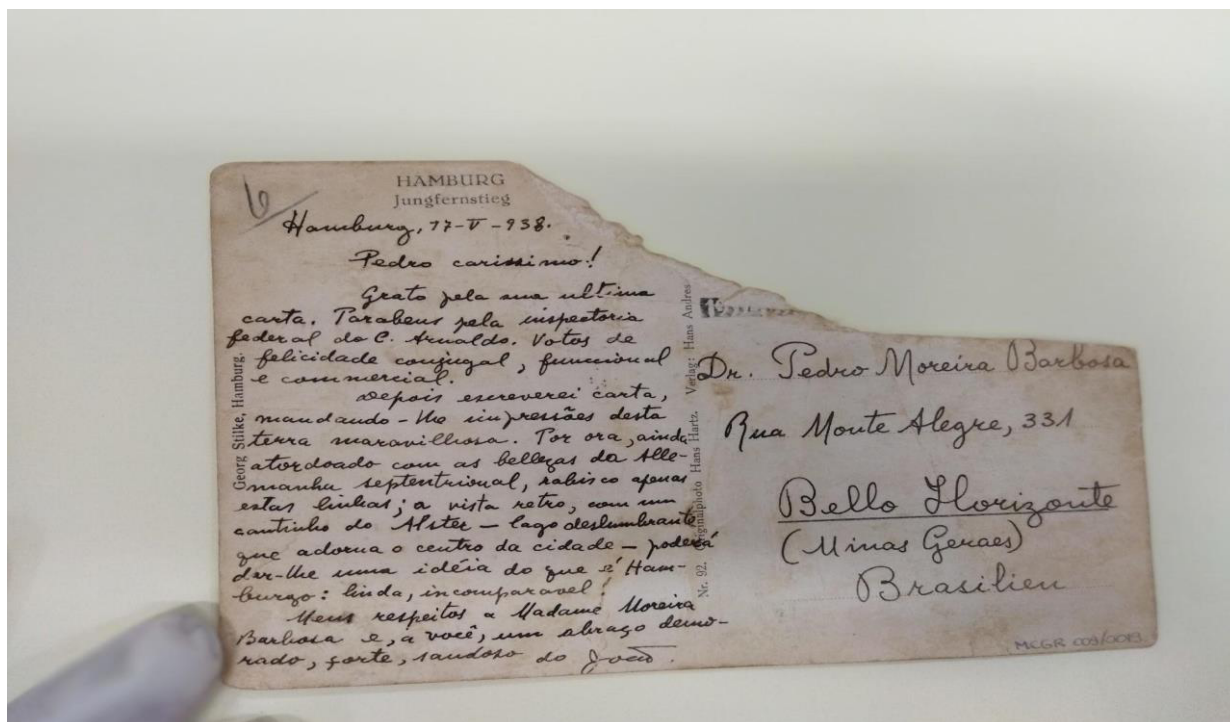 6
HAMBURG
Jungfernstieg
Hamburg, 17-V-938.
Pedro carissimo!
Grato pela sua ultima
carta. Parabens pela inspectoria
federal do C. Arnaldo. Votos de
felicidade conjugal, funccional
e commercial.
Depois escreverei carta,
mandando-lhe impressões desta
terra maravilhosa. Por ora, ainda
atordoado com as bellezas da Alle-
manha septentrional, rabisco apenas
estas linhas; a vista retro, com um
cantinho do Alster – lago deslumbrante
que adorna o centro da cidade – poderá
dar-lhe uma idéia do que é Ham-
burgo: linda, incomparavel!
Meus respeitos a Madame Moreira
Barbosa e, a você, um abraço demo-
rado, forte, saudoso do João.
Georg Stilke, Hamburg.
Nr. 92. Originalphoto Hans Hartz. Verlag: Hans Andres
Dr. Pedro Moreira Barbosa
Rua Monte Alegre, 331
Bello Horizonte
(Minas Geraes)
Brasilien
MCGR 009/0013